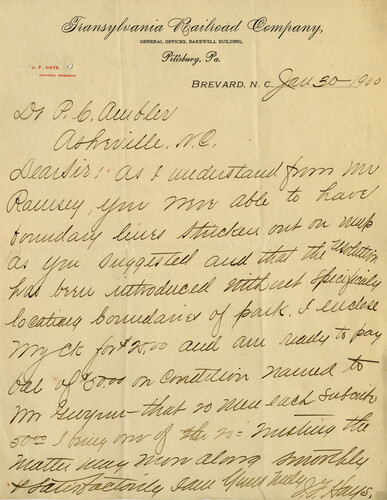 Transylvania Railroad Company,
GENERAL OFFICES, BAKEWELL BUILDING,
Pittsburg, Pa.
J. F. HAYS,
GENERAL MANAGER.
BREVARD, N. C. Jan 30 - 1900
Dr P. C. Ambler
Asheville, N.C.
Dear Sir:- As I understand from Mr
Ramsey, you were able to have
boundary lines stricken out on map
as you suggested and that the resolution
has been introduced without specifically
locating boundaries of park. I enclose
my ck for $25.00 and am ready to pay
bal of $50.00 on condition named to
Mr Gwynn - that 20 men each subscribe
50.00 I being one of the 20: - Trusting the
matter may move along smoothly
& satisfactorily I am Yours truly
J F Hays.